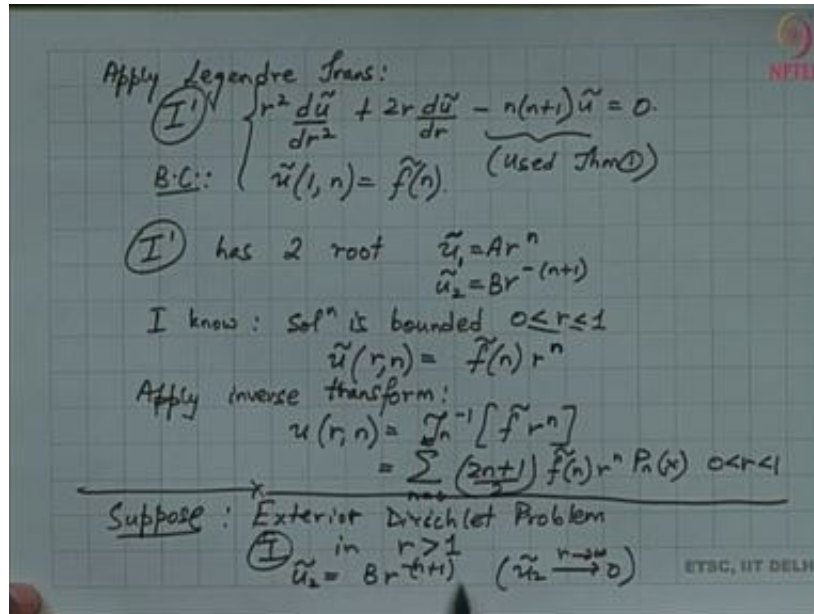 Apply Legendre Trans:
NPTEL
I' { r² dũ/dr² + 2r dũ/dr - n(n+1)ũ = 0.
(used Thm ①)
B.C:: ũ(1, n) = f̃(n).
I' has 2 root ũ₁ = Ar^n
ũ₂ = Br^-(n+1)
I know: solⁿ is bounded 0≤r≤1
ũ(r,n) = f̃(n) r^n
Apply inverse transform:
u(r,n) = J_n^-1 [f̃ r^n]
= Σ n=0 (2n+1)/2 f̃(n) r^n P_n(x) 0<r<1
Suppose: Exterior Dirichlet Problem
I in r>1
ũ₂ = Br^-(n+1) (ũ₂ r→∞ → 0)
ETSC, IIT DELH